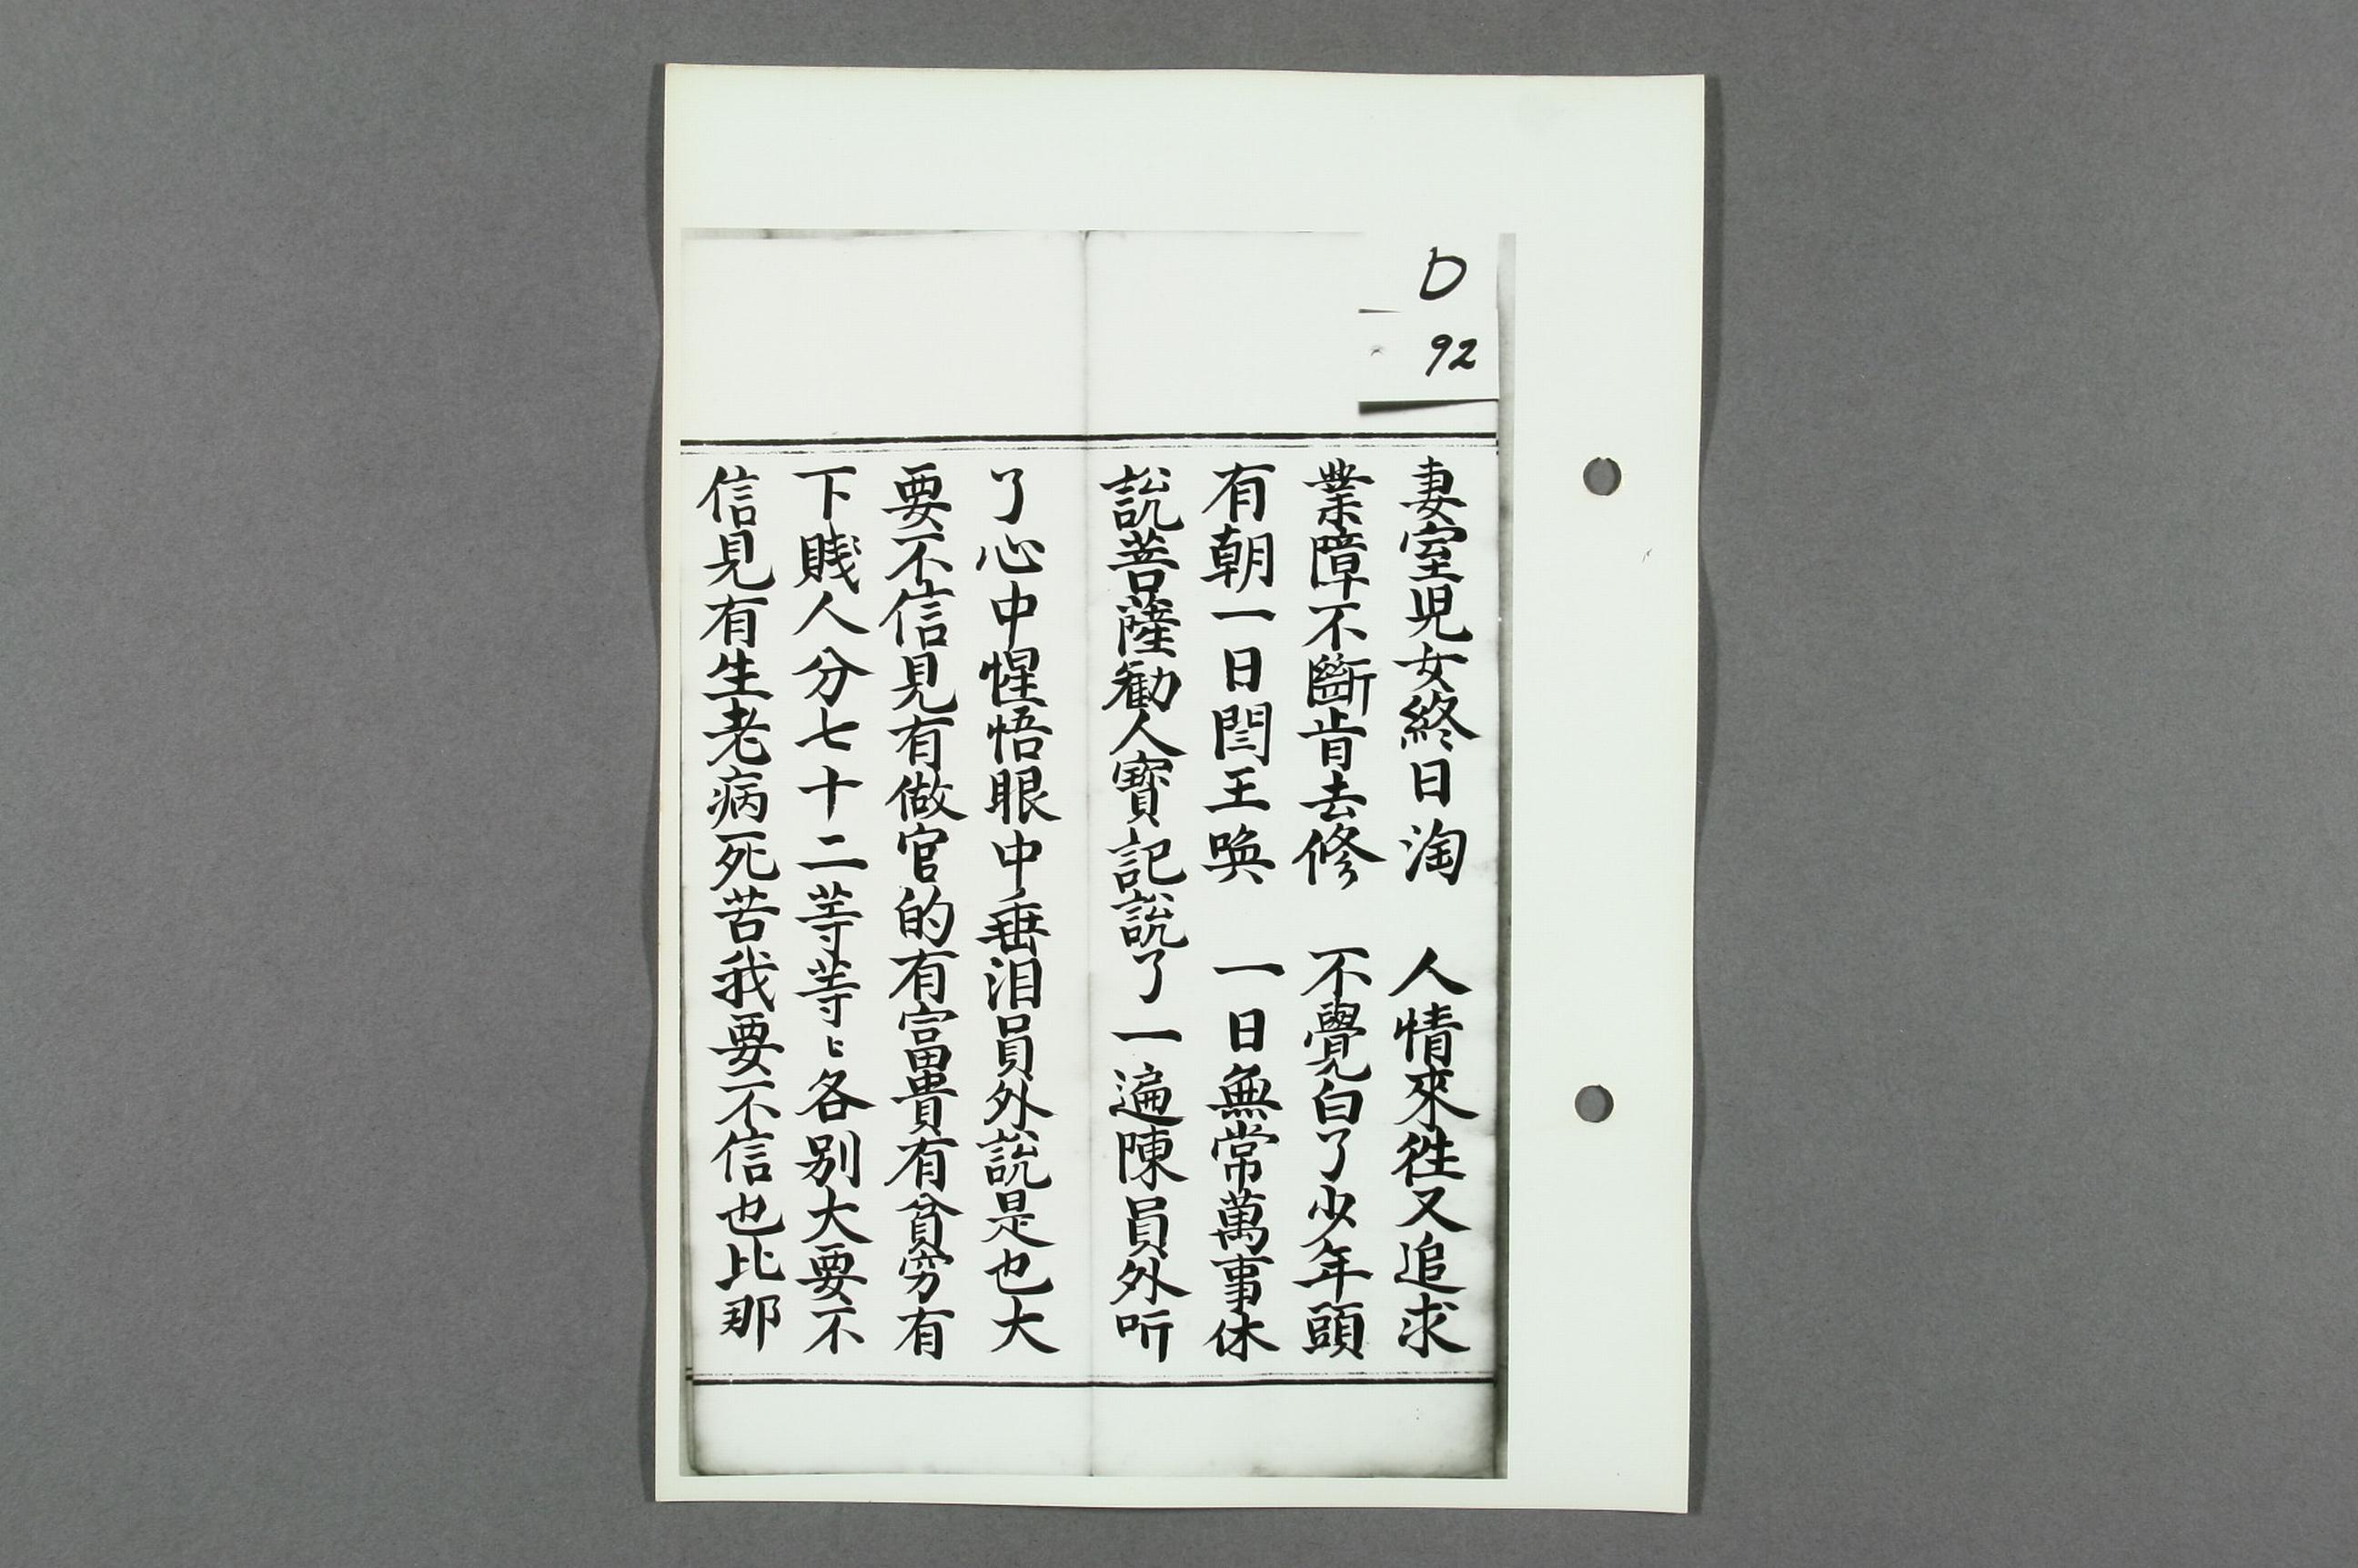 D
92
妻室児女終日淘　人情來徃又追求
業障不斷肯去修　不覺白了少年頭
有朝一日閆王喚　一日無常萬事休
說菩薩勸人寶記說了一遍陳員外听
了心中惺悟眼中垂泪員外說是也大
要不信見有做官的有富貴有貧穷有
下賎人分七十二等等〻各别大要不
信見有生老病死苦我要不信也比那